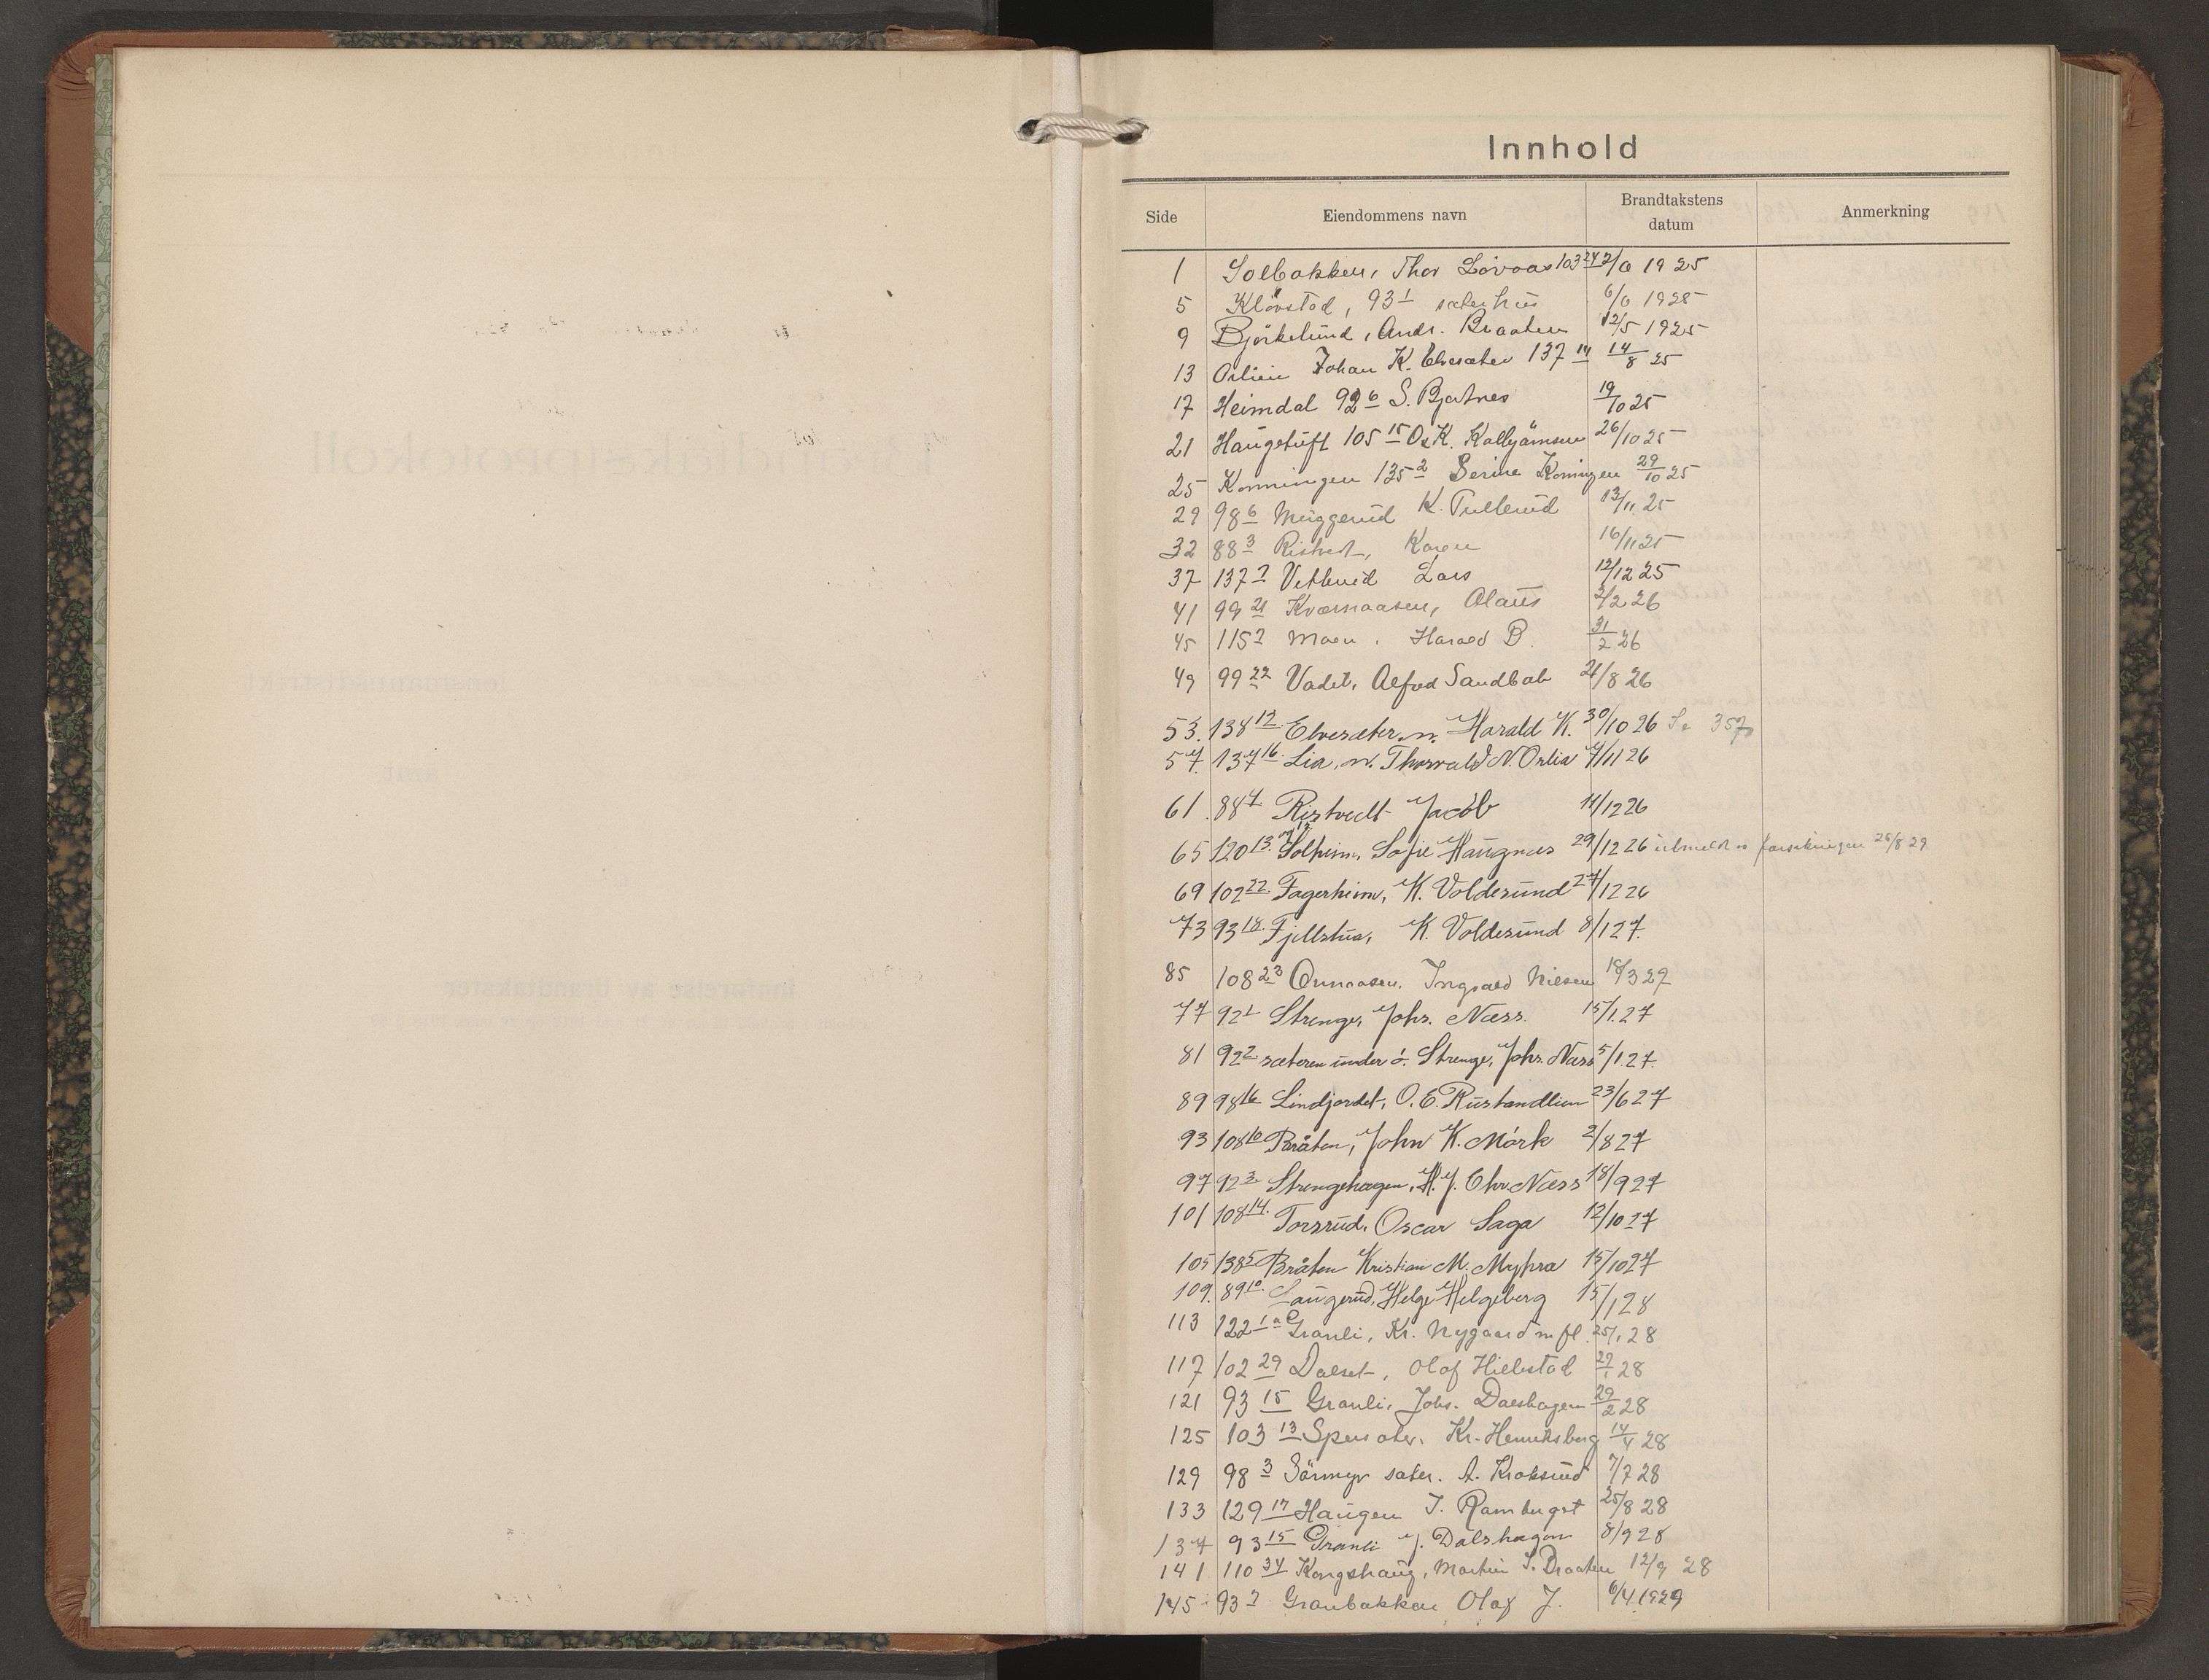 Innhold
Side Eiendommens navn Brandtakstens datum Anmerkning
1 Solbakken, Thor Lövaas 103 24 2/6 1925
5 Klövstad, 93 1 sæterhus 6/6 1925
9 Björkelund, Andr. Braaten 12/5 1925
13 Orlien Johan K. Elvesæter 137 14 14/8 25
17 Heimdal 92 6 S. Bjertnes 19/10 25
21 Haugetuft 105 15 O. K. 26/10 25
25 Konningen 135 2 Serine Koningen 29/10 25
29 98 6 Muggerud K. Tullerud 13/11 25
32 88 3 Ristvedt, Karen 16/11 25
37 137 7 Vetlerud Lars 12/12 25
41 99 21 Kværnaasen, Olaus 2/2 26
45 115 7 Moen, Harald B. 31/2 26
49 99 22 Vadet, Alfred Sandbak 21/8 26
53. 138 12. Elvesæter n. Harald K. 30/10 26 Se 357
57. 137 16. Lia, n. Thorvald N. Orlia 7/11 26
61. 88 7. Ristvedt Jacob 11/12 26
65 120 13. og 12 Solheim, Sofie Haugnes 29/12 26 utmeldt av forsikringen 26/8 29
69 102 22. Fagerheim, K. Voldesund 27/12 26
73 93 18. Fjellstua, K. Voldesund 8/1 27.
85 108 23 Ormaasen, Ingvald Nilsen 18/3 27
77 92 1 Strenge, Johs. Næss. 15/1.27
81 92 2. sæteren under ö. Strenge, Johs. Næss 5/1.27.
89 98 16 Lindjordet, O. E. Rustandlien 23/6 27
93 108 10 Bråten, John K. Mörk 2/8 27
97 92 3. Strengehagen, H. J. Chr. Næss 18/9 27
101 108 14. Torsrud, Oscar Saga 12/10 27
105 138 5 Bråten Kristian M. Myhra 15/10 27
109. 89 10. Haugerud, Helge Helgeberg 15/1 28
113 122 1 a Granli, Kr. Nygaard m. fl. 25/1 28
117 102 29 Dalset, Olaf Hiebstad 27/1 28
121 93 15 Granli, Johs. Dalshagen 29/2 28
125 103 13 Kr. Henriksberg 14/4 28
129 98 3 Sörmyr sæter. A. Kroksrud 7/7 28
133 129 17 Haugen J. Ramberget 25/8 28
137 93 15 Granli J. Dalshagen 8/9 28
141 110 34 Kongshaug, Martin S. Braaten 12/9 28
145 93 7 Granbakken Olaf J. 6/4 1929